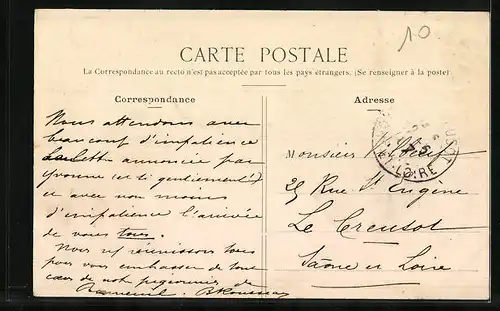 10
CARTE POSTALE
La Correspondance au recto n'est pas acceptée par tous les pays étrangers. (Se renseigner à la poste)
Correspondance
Adresse
Nous attendons avec
beaucoup d'impatience
annoncée par
Yvonne (et si gentiement)
et avec non moins
d'impatience l'arrivée
de vous tous.
Nous réunissons tous
pour vous embrasser de tout
cœur de
Monsieur
25 Rue St Eugène
Le Creusot
Saône et Loire
LOIRE